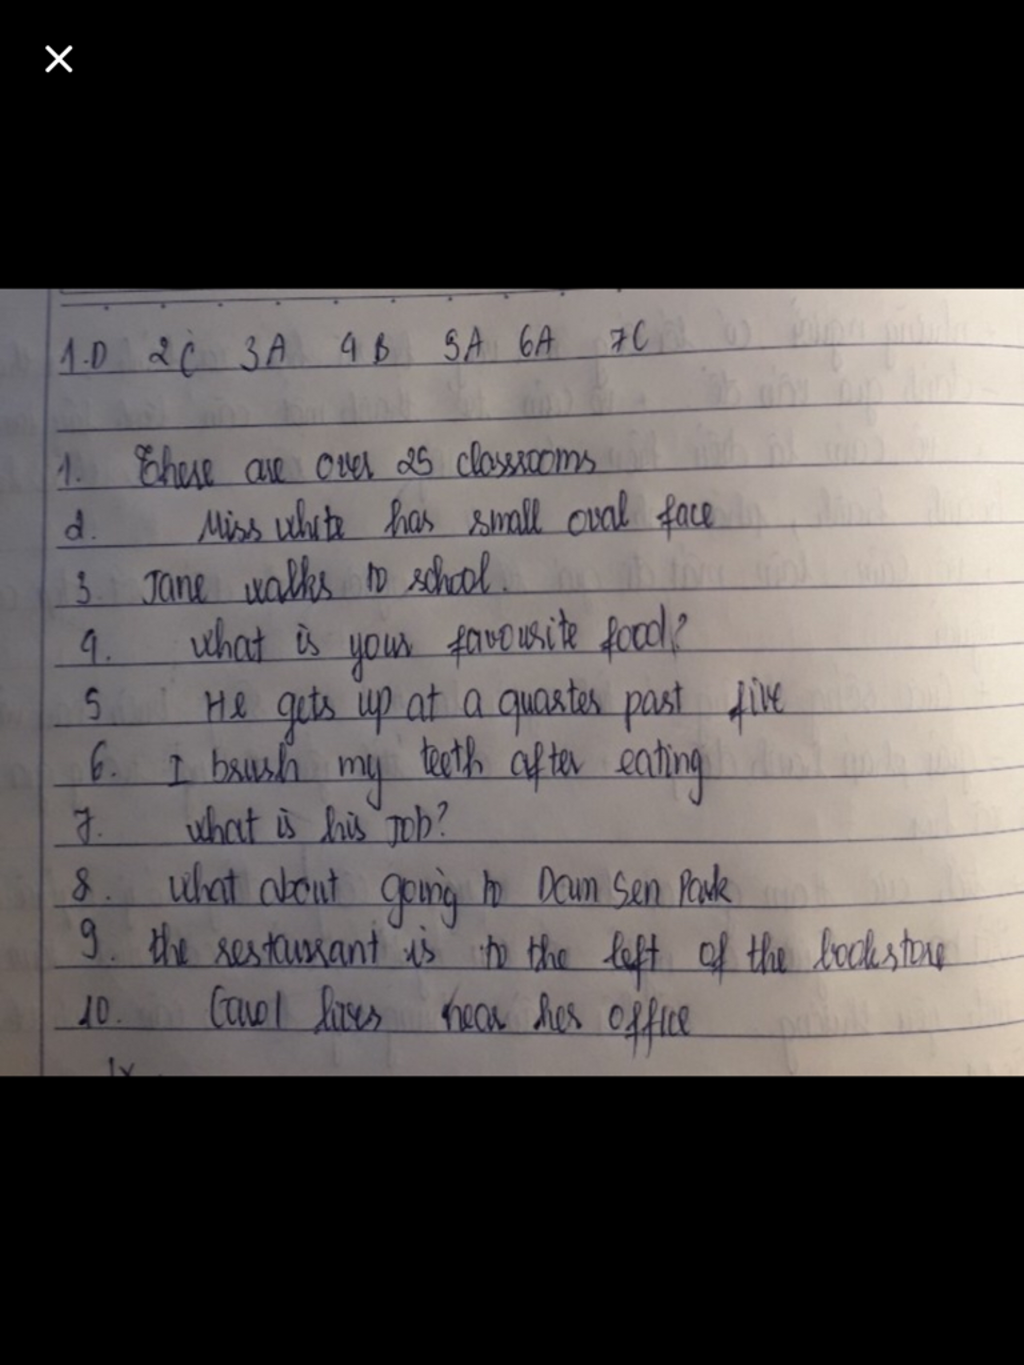 1.D 2C 3A 4B 5A 6A 7C
1. There are over 25 classrooms
2. Miss White has small oval face
3. Jane walks to school.
4. What is your favourite food?
5 He gets up at a quarter past five
6. I brush my teeth after eating
7. what is his job?
8. What about going to Dam Sen Park
9. the restaurant is to the left of the bookstore
10. Carol lives near her office